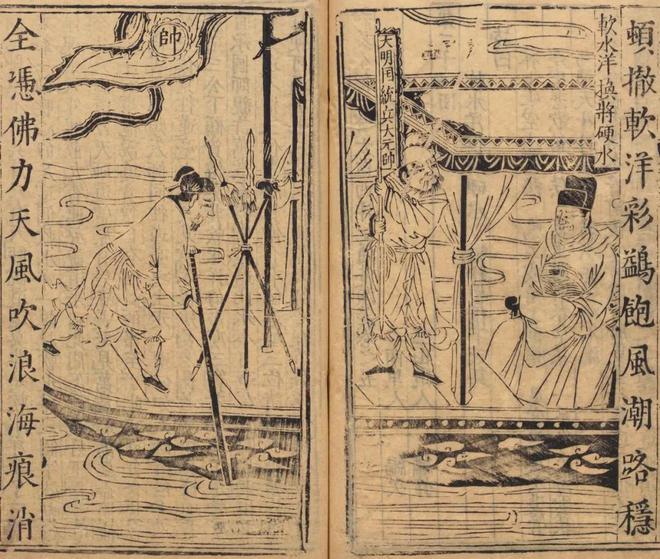 頓撤軟洋彩鷁飽風潮路穩
軟水洋換將硬水
大明国統兵大元帥
帥
全憑佛力天風吹浪海痕消